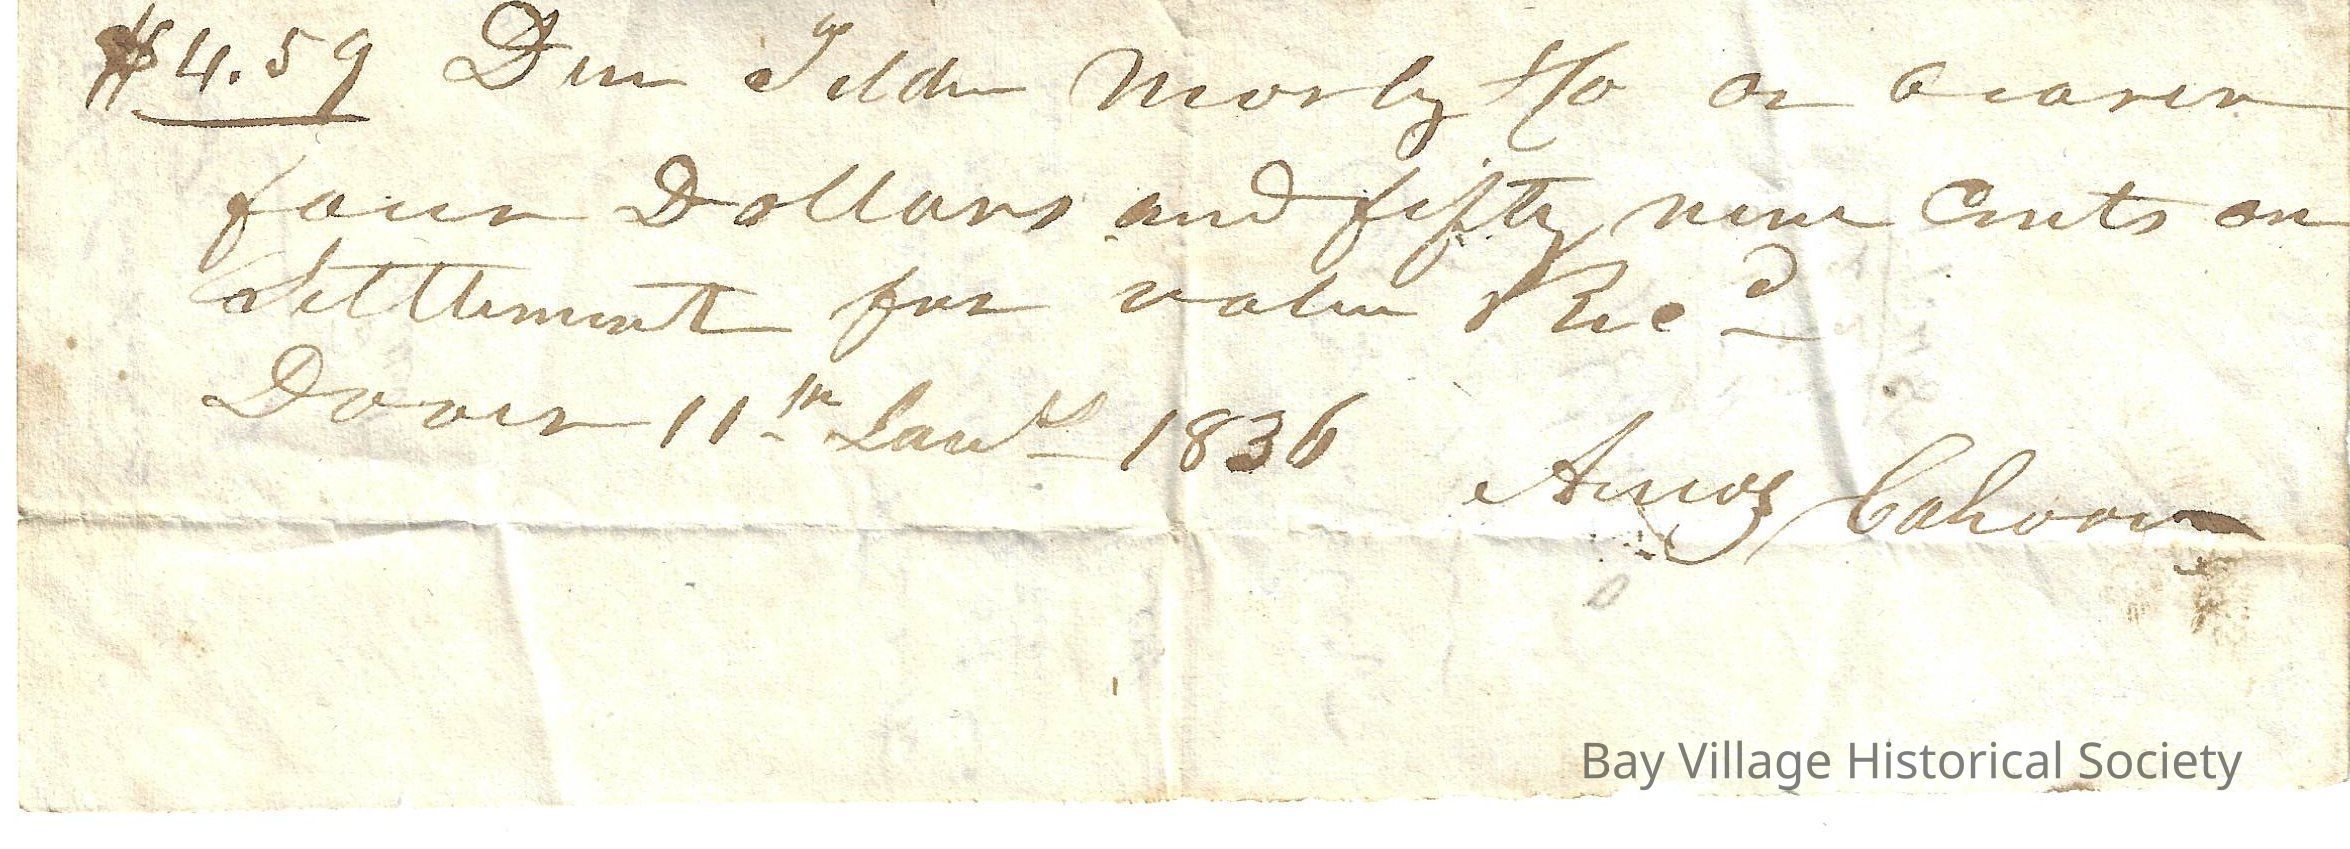 $4.59 Due Tilden Morly & Co or bearer
four Dollars and fifty nine Cents on
Settlement for value Rec^d
Dover 11^th Jany 1836
Amos Cahoon
Bay Village Historical Society